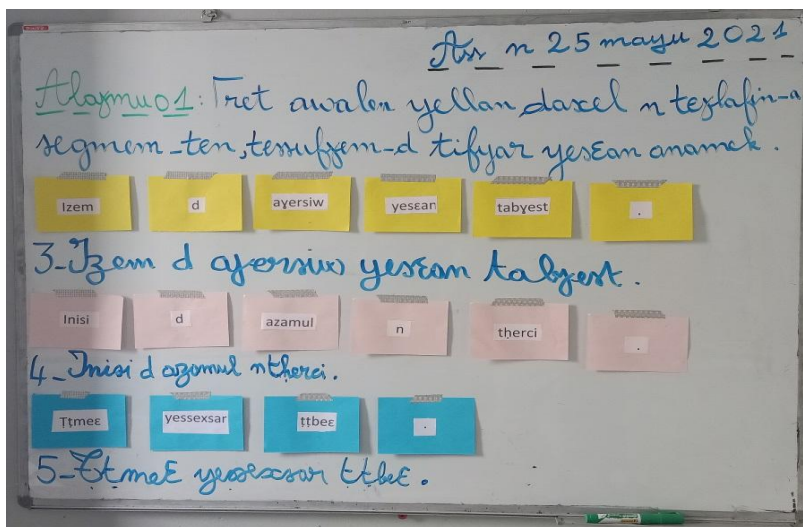 Ass n 25 mayu 2021
Alaɣmu 01: Tret awalen yellan daxel n tezlafin-a
segmem-ten, tessufɣem-d tifyar yesɛan anamek.
Izem d aɣersiw yesɛan tabɣest .
3-Izem d aɣersiw yesɛan tabɣest.
Inisi d azamul n tḥerci .
4-Inisi d azamul n tḥerci.
Ṭṭmeɛ yessexsar ṭṭbeɛ .
5-Ṭṭmeɛ yessexsar ṭṭbeɛ.